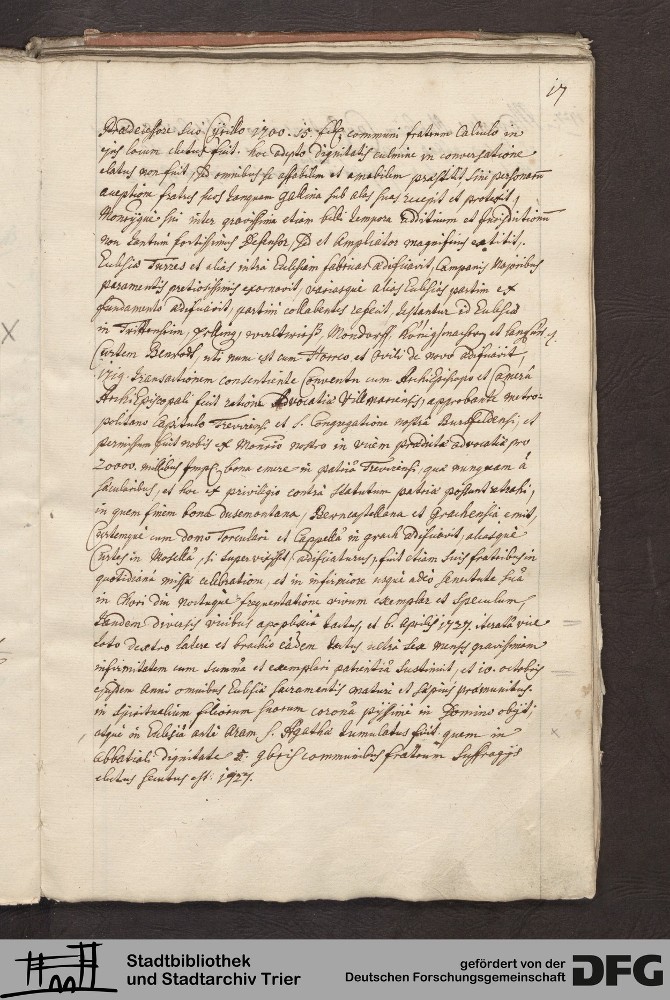 17
Praedecessore suo Cyrillo 1700. 15. communi fratrum Calculo in
ejus locum electus fuit. hoc adepto dignitatis culmine in conversatione
elatus non fuit, sed omnibus se affabilem et amabilem praestitit, sine personarum
acceptione fratres suos tanquam gallina sub alas suas recepit et protexit,
Monrijque sui inter gravissima etiam belli tempora et Jurisdictionum
non tantum fortissimus defensor, sed et Ampliator magnificus extitit.
Ecclesiae Turres et alias intra Ecclesiam fabricas aedificavit, Campanis Majoribus
paramentis pretiosissimis exornavit, variasque alias Ecclesias partim ex
fundamento aedificavit, partim collabentes refecit, testantur id Ecclesiae
in Trittenheim, Mondorff, Königsmacher et
Curtem Benrodt, uti nunc est cum Horreo et Ovili de novo aedificavit,
1719. transactionem consentiente Conventu cum ArchiEpiscopo et Camera
ArchiEpiscopali fecit ratione Advocatiae Villmariensis, approbante metro-
politano Capitulo Trevirensi et S. Congregatione nostra Bursfeldensi, et
permissum fuit nobis et Monrio nostro in vicem praedictae advocatiae pro
20000. millibus Impl. bona emere in patria Trevirensi, quae nunquam à
saecularibus, et hoc ex privilegio contra statutum patriae possunt retrahi,
in quem finem bona dusemontana, Berncastellana et Grachensia emit,
Curtemque cum domo Torculari et Cappella in grach aedificavit, aliasque
Curtes in Mosella, si supervixisset, aedificaturus, fuit etiam suis fratribus in
quotidiana missae celebratione, et in infirmiore usque adeo senectute sua
in Chori diu noctuque frequentatione vivum exemplar et speculum,
tandem diversis vicibus apoplexia tactus, et 6. Aprilis 1727. iterata vice
toto dextro latere et brachio eadem tactus ultra sex menses gravissimam
infirmitatem cum summa et exemplari patientia sustinuit, et 10. octobris
ejusdem anni omnibus Ecclesiae sacramentis mature et saepius praemunitus.
in spiritualium filiorum suorum corona pijssime in Domino obijt,
atque in Ecclesia ante Aram S. Agathae tumulatus fuit. quem in
abbatiali dignitate 9bris communibus fratrum suffragijs
electus secutus est. 1727.
Stadtbibliothek
und Stadtarchiv Trier
gefördert von der
Deutschen Forschungsgemeinschaft
DFG